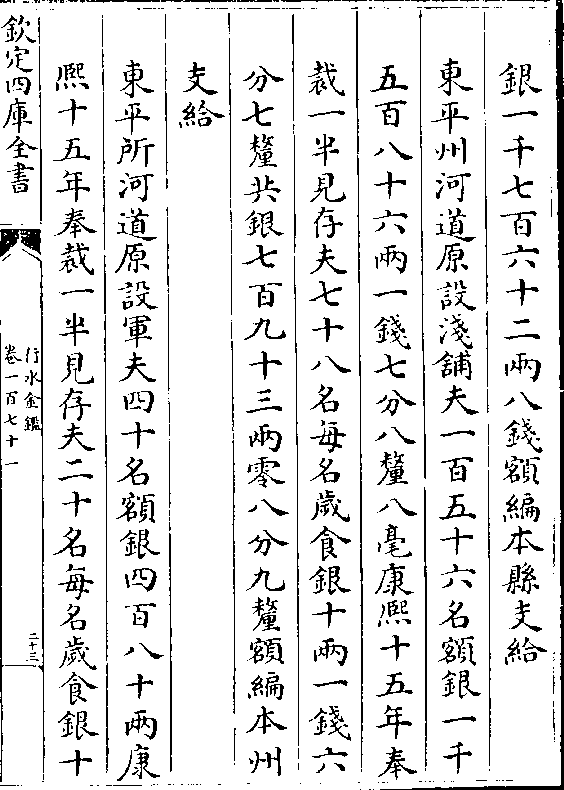 銀一千七百六十二兩八錢額編本縣支給
東平州河道原設淺舖夫一百五十六名額銀一千
五百八十六兩一錢七分八釐八毫康熙十五年奉
裁一半見存夫七十八名每名歲食銀十兩一錢六
分七釐共銀七百九十三兩零八分九釐額編本州
支給
東平所河道原設軍夫四十名額銀四百八十兩康
熙十五年奉裁一半見存夫二十名每名歲食銀十
欽定四庫全書
行水金鑑
卷一百七十一
二十三